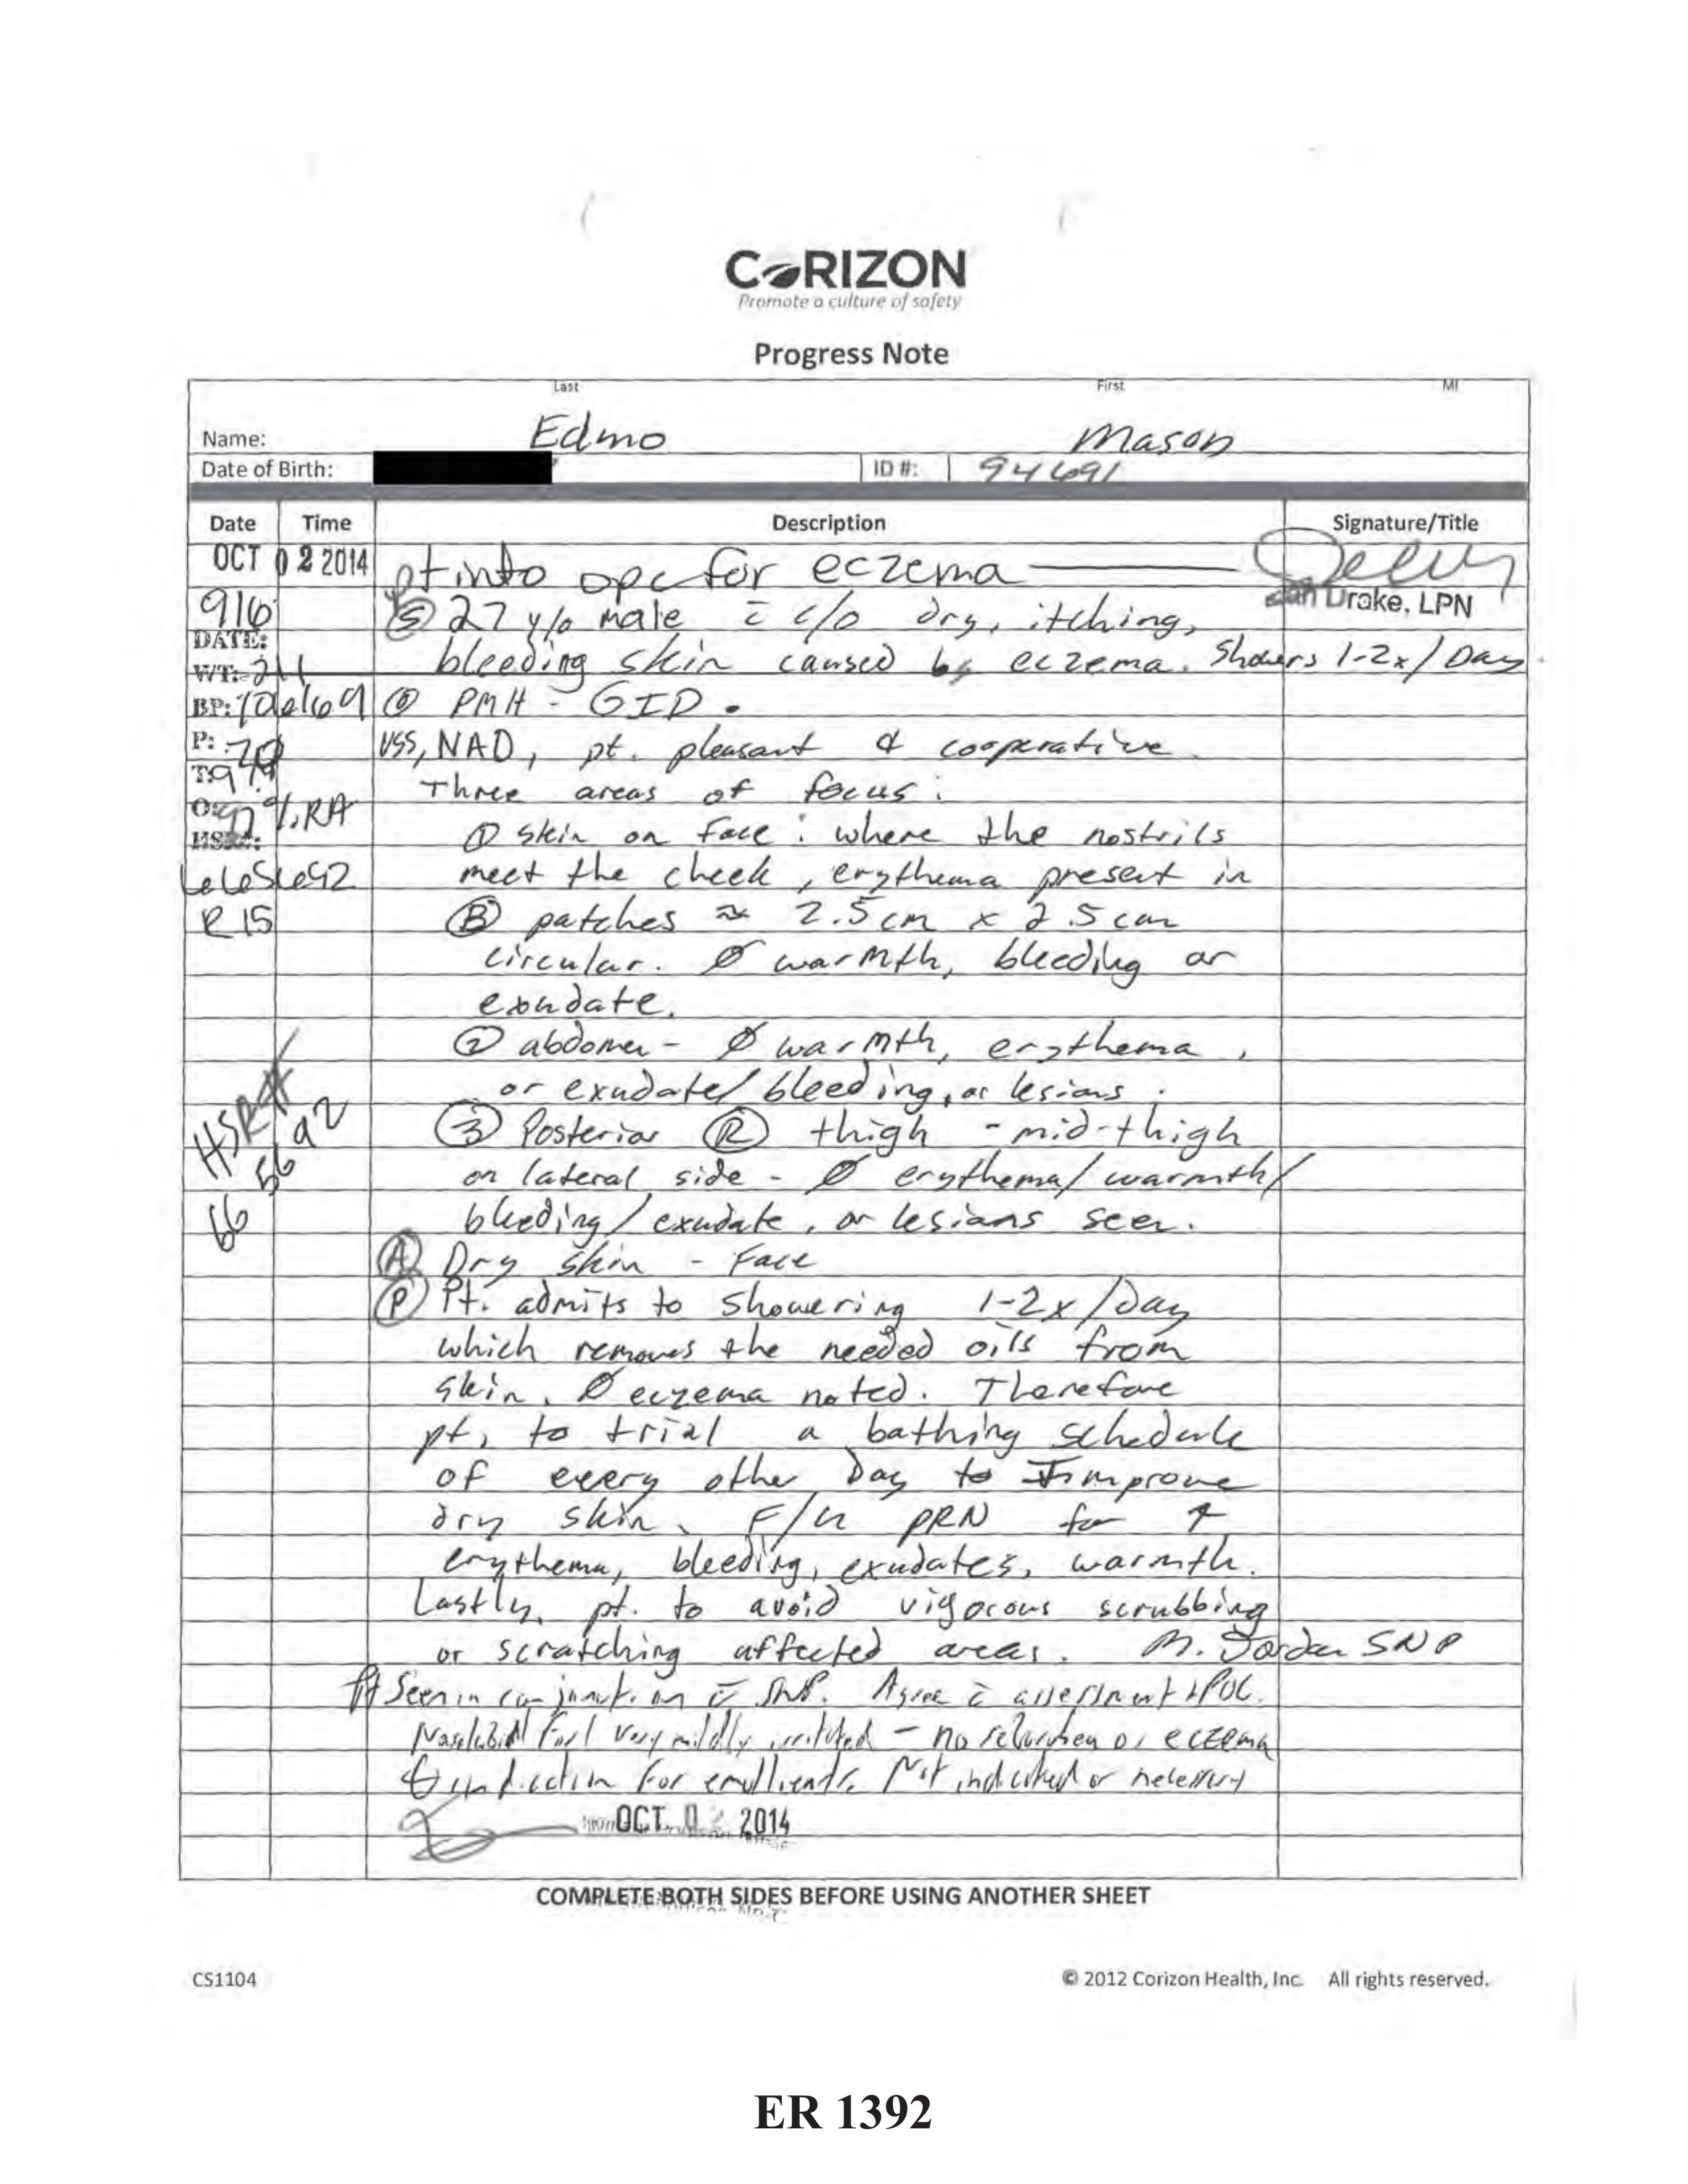 CORIZON
Promote a culture of safety
Progress Note
Last First MI
Name: Edmo Mason
Date of Birth: ID #: 94691
Date Time Description Signature/Title
OCT 02 2014 pt into opc for eczema
Drake, LPN
916 Ⓢ 27 y/o male c̄ c/o dry, itching,
DATE:
WT: 211 bleeding skin caused by eczema. Showers 1-2x/Day
BP: Ⓞ PMH - GID.
P: 70 VSS, NAD, pt. pleasant & cooperative
T: Three areas of focus:
97% RA
HSR#: ① skin on face: where the nostrils
meet the cheek, erythema present in
R 15 Ⓑ patches ≈ 2.5 cm x 2.5 cm
circular. Ø warmth, bleeding or
exudate.
② abdomen - Ø warmth, erythema,
or exudate/bleeding, or lesions.
HSR# ③ Posterior Ⓡ thigh - mid-thigh
on lateral side - Ø erythema/warmth/
66 bleeding/exudate, or lesians seen.
Ⓐ Dry skin - Face
Ⓟ Pt. admits to showering 1-2x/Day
which removes the needed oils from
skin. Ø eczema noted. Therefore
pt. to trial a bathing schedule
of every other Day to improve
dry skin. F/u PRN for ↑
erythema, bleeding, exudates, warmth.
Lastly, pt. to avoid vigorous scrubbing
or scratching affected areas. M. Jordan SNP
Pt Seen in conjunction c̄ SNP. Agree c̄ assessment & POC.
Nasolabial Fold very mildly irritated - no seborrhea or eczema
indication for emollients. Not indicated or necessary
OCT 02 2014
COMPLETE BOTH SIDES BEFORE USING ANOTHER SHEET
CS1104 © 2012 Corizon Health, Inc. All rights reserved.
ER 1392